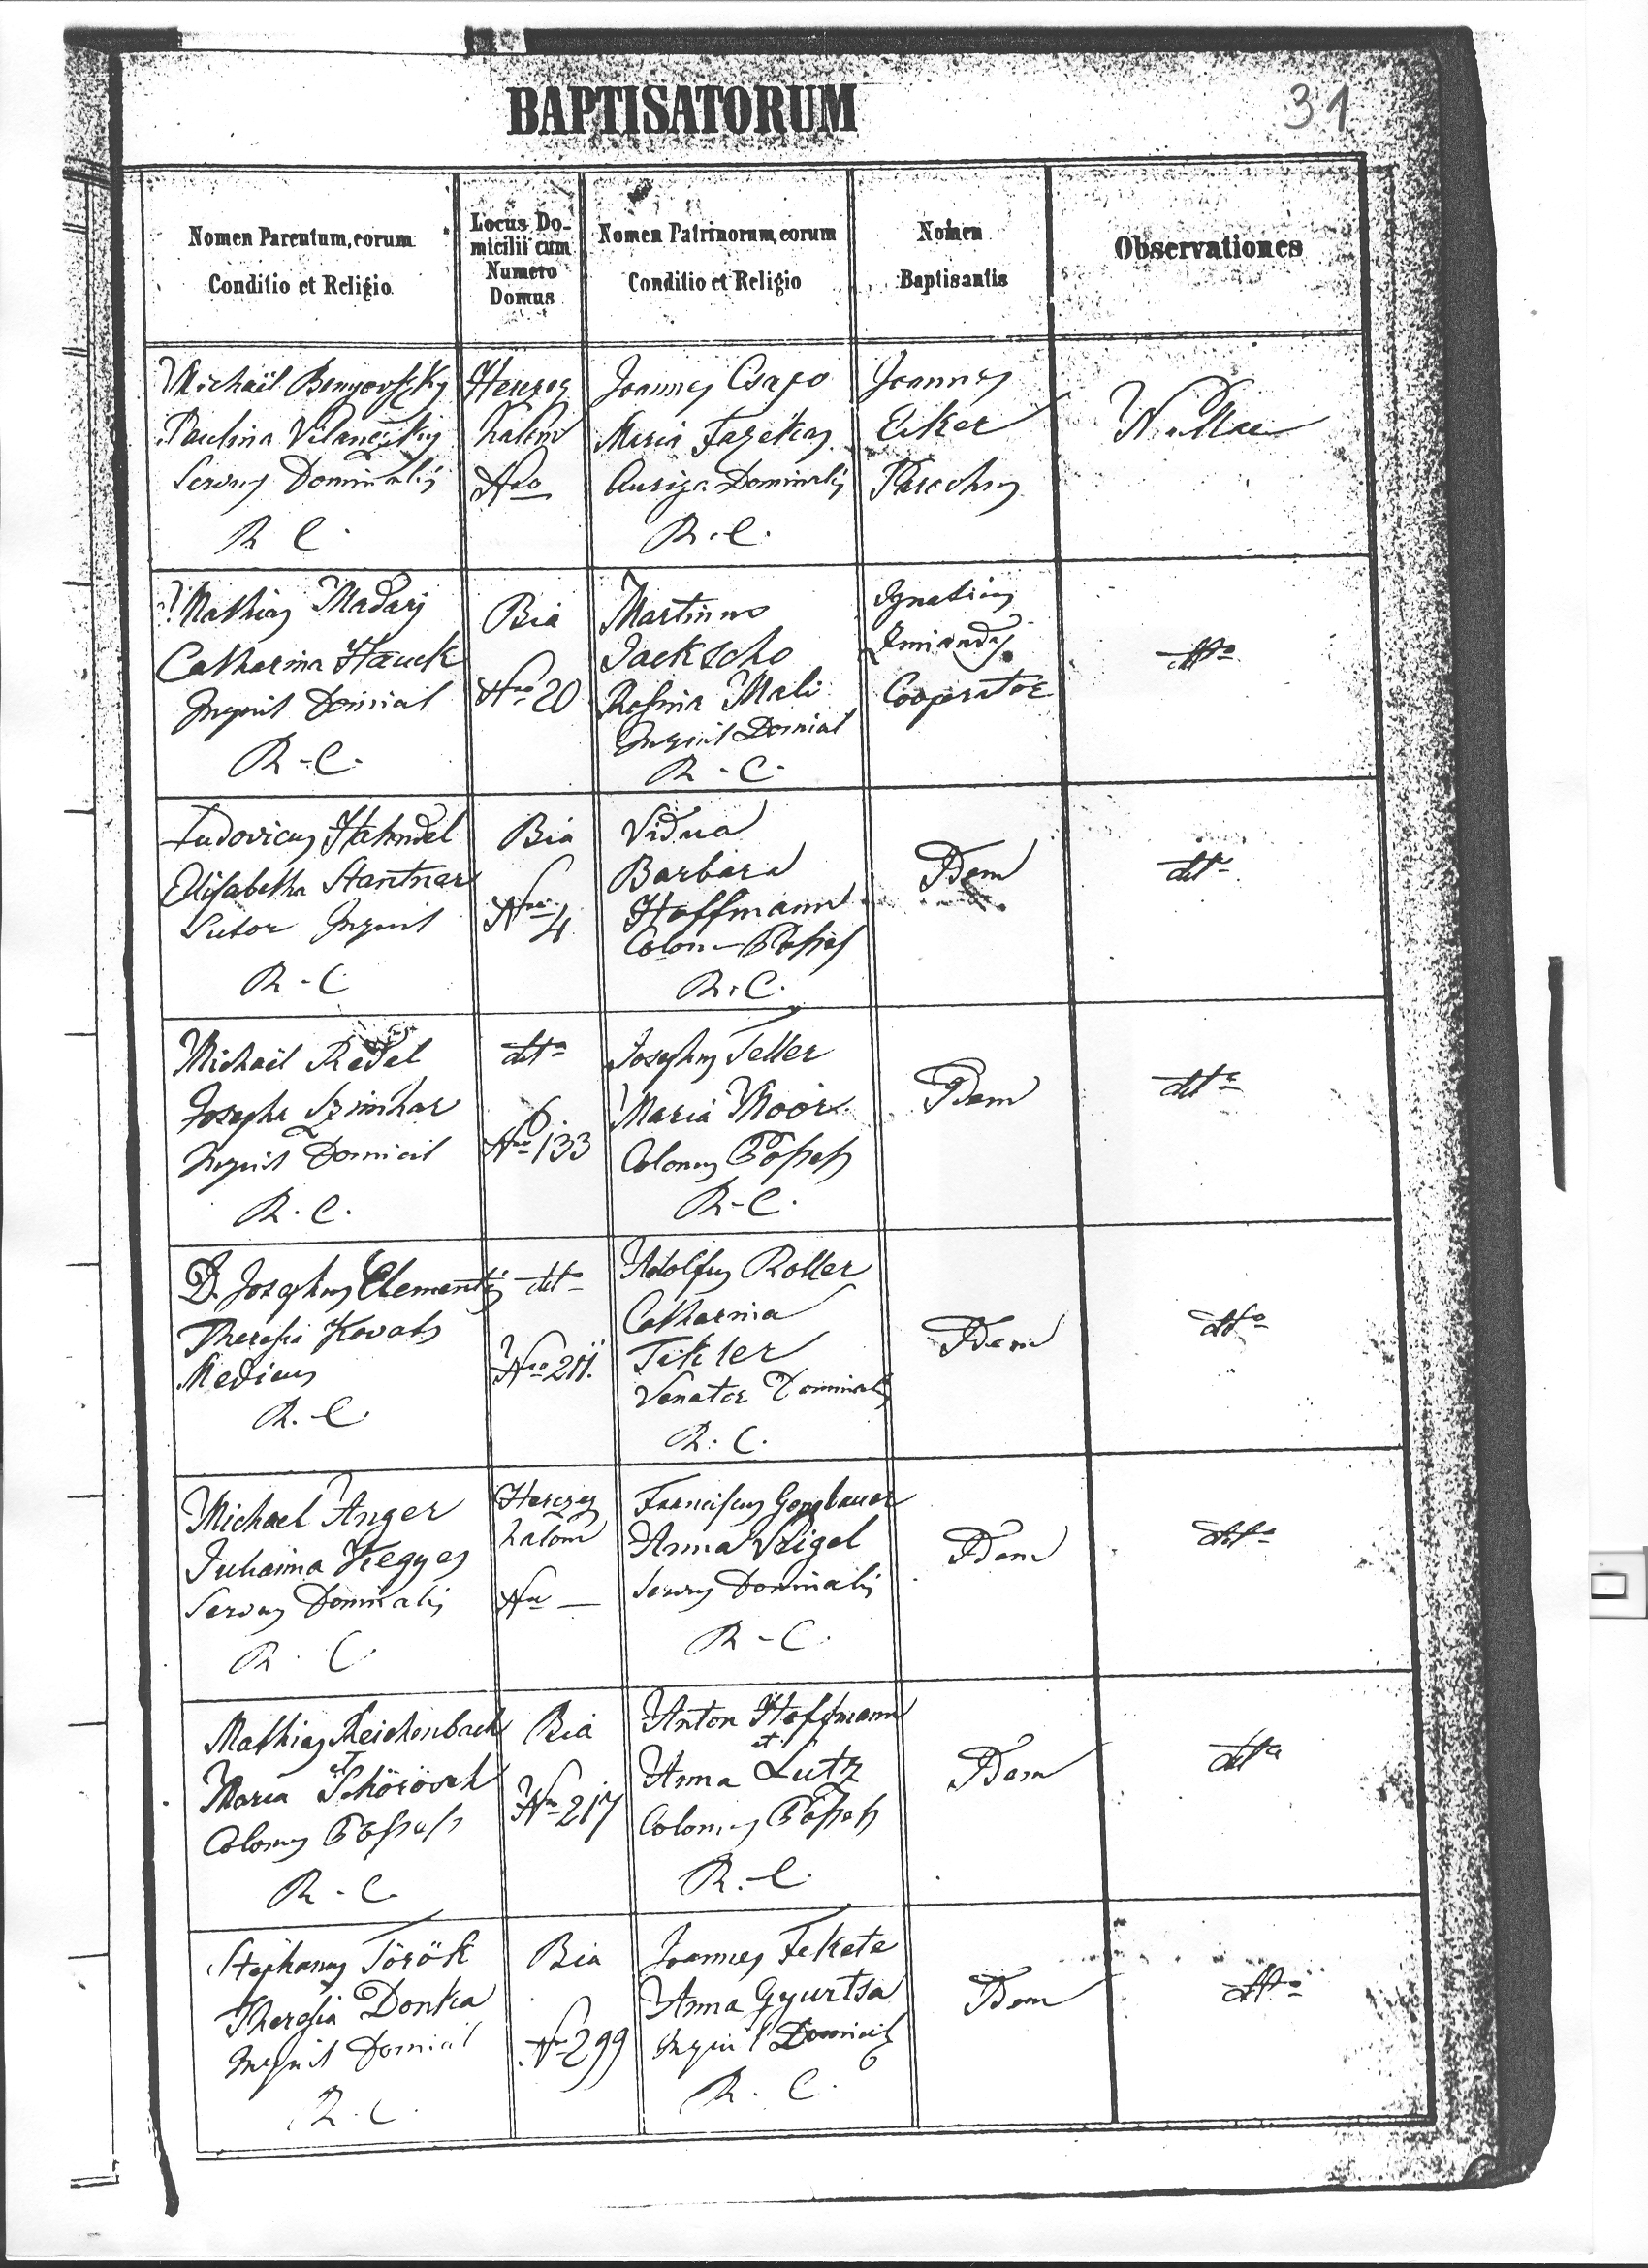 BAPTISATORUM
31
Nomen Parentum, eorum
Conditio et Religio
Locus Do-
micilii cum
Numero
Domus
Nomen Patrinorum, eorum
Conditio et Religio
Nomen
Baptisantis
Observationes
Michaïl
Paulina
Servus Dominalis
R C.
Herczog
halom
Nro
Joannes Csapo
Maria Fazekas
Auriga Dominalis
R. C.
Joannes
Eiker
Parochus
Nullae
Mathias Madari
Catharina Hauck
Inquil Domicil
R. C.
Bia
Nro 20
Martinus
Jackscho
Rosina Mali
Inquil Domicil
R. C.
Ignatius
Cooperator
dtto
Ludovicus Hahndel
Elisabetha Stantner
Sutor Inquil
R. C
Bia
Nro 4
Vidua
Barbara
Hoffmann
R. C.
Idem
dtto
Michaël Redel
Josepha
Inquil Domicil
R. C.
dtto
Nro 133
Josephus Teller
Maria Moor
Colonus Possess
R. C.
Idem
dtto
D. Josephus Clementis
Theresia Kovats
Medicus
R. C.
dtto
Nro 211.
Adolfus Roller
Catharina
Tikler
Venator Dominalis
R. C.
Idem
dtto
Michael Anger
Julianna Hegyes
Servus Dominalis
R. C.
Herczog
halom
Nro —
Franciscus
Anna Veigel
Servus Dominalis
R. C.
Idem
dtto
Mathias Reichenbach
et
Maria
Colonus Possess
R. C.
Bia
Nro 217
Anton Hoffmann
et
Anna Lutz
Colonus Possess
R. C.
Idem
dtto
Stephanus Török
Theresia Donka
Inquil Domicil
R. C.
Bia
Nro 299
Joannes Fekete
Anna Gyurtsa
Inquil Domicil
R. C.
Idem
dtto